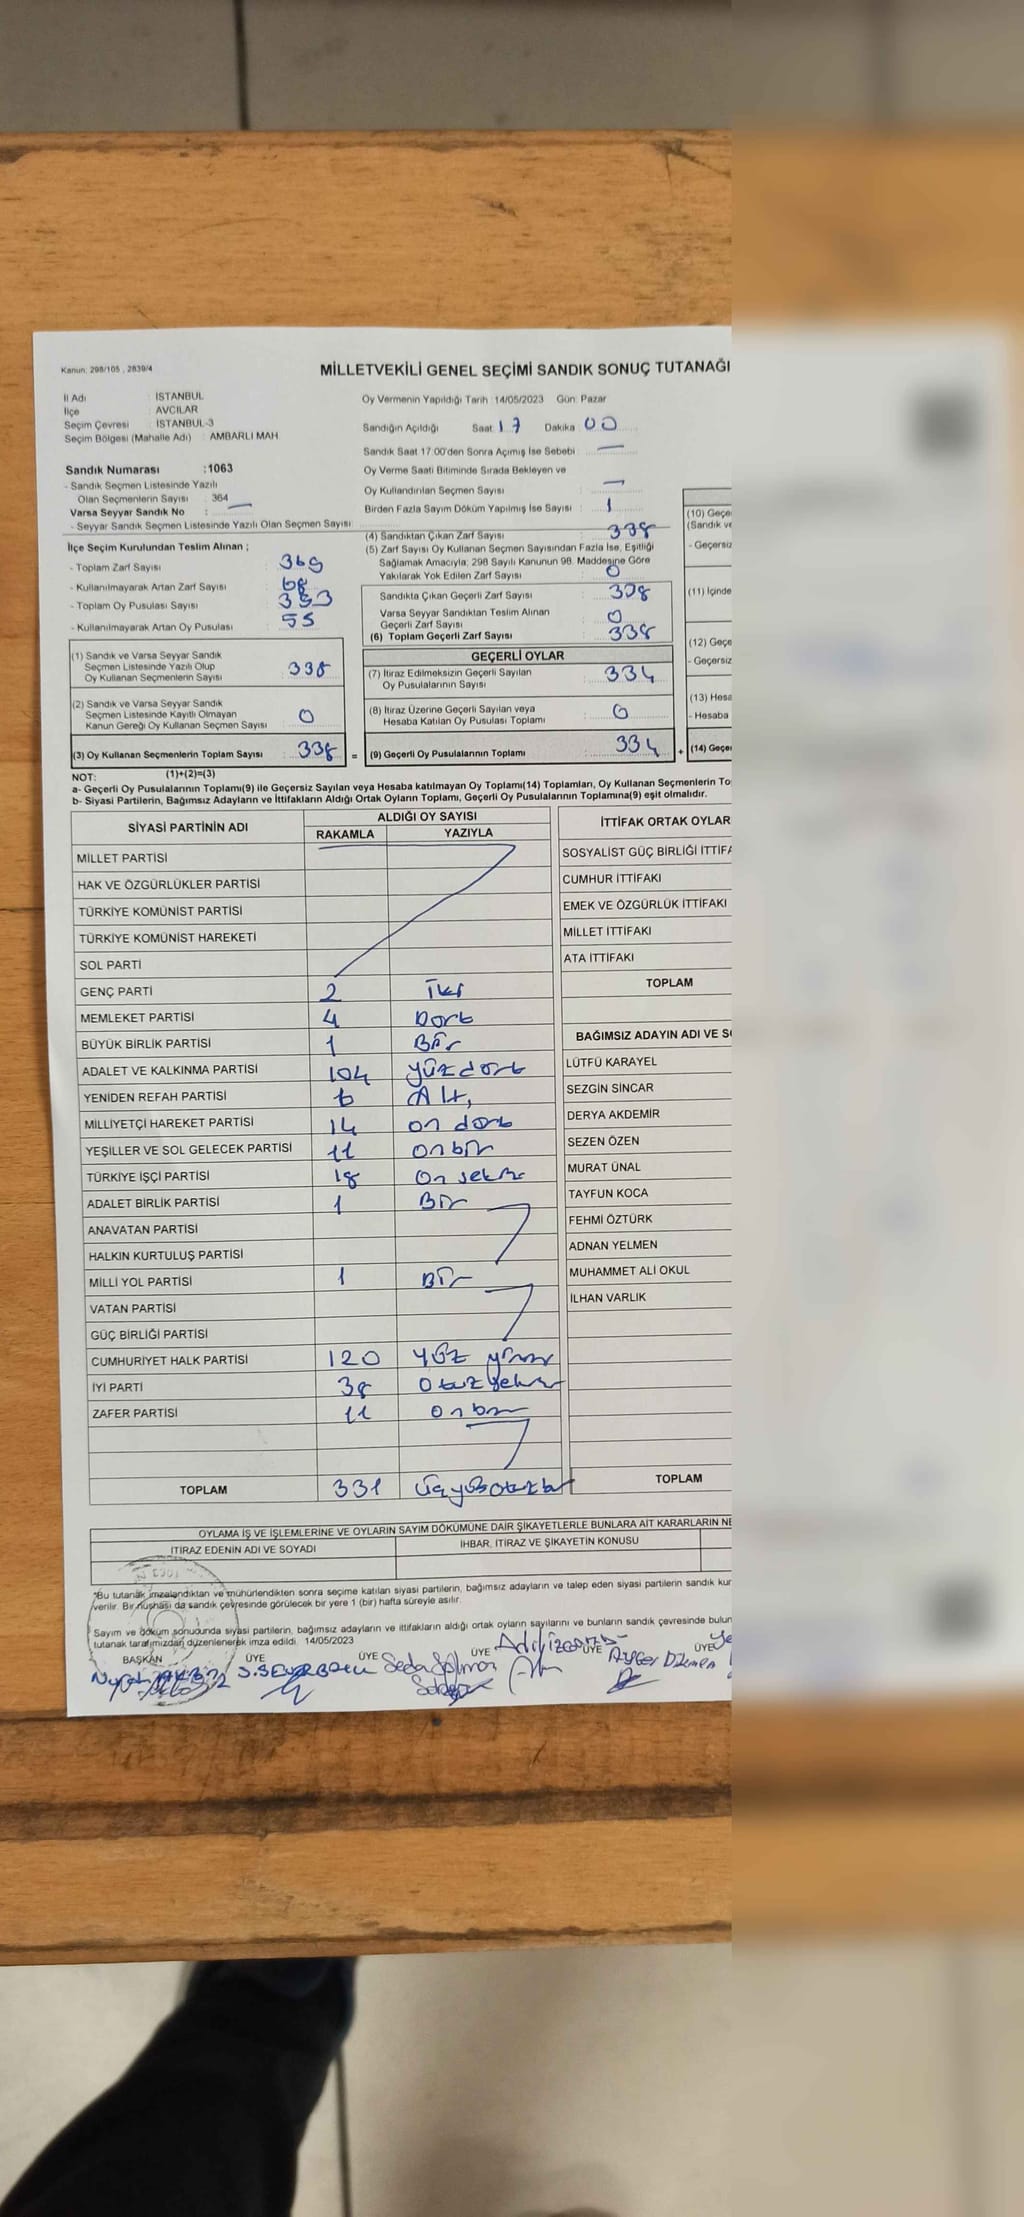 Kanun: 298/105 , 2839/4
MİLLETVEKİLİ GENEL SEÇİMİ SANDIK SONUÇ TUTANAĞI
İl Adı : İSTANBUL
İlçe : AVCILAR
Seçim Çevresi : İSTANBUL-3
Seçim Bölgesi (Mahalle Adı) : AMBARLI MAH
Oy Vermenin Yapıldığı Tarih :14/05/2023 Gün: Pazar
Sandığın Açıldığı Saat 17 Dakika 00
Sandık Saat 17.00'den Sonra Açımış İse Sebebi : —
Oy Verme Saati Bitiminde Sırada Bekleyen ve
Oy Kullandırılan Seçmen Sayısı : —
Birden Fazla Sayım Döküm Yapılmış İse Sayısı : 1
Sandık Numarası :1063
- Sandık Seçmen Listesinde Yazılı
Olan Seçmenlerin Sayısı : 364
Varsa Seyyar Sandık No —
- Seyyar Sandık Seçmen Listesinde Yazılı Olan Seçmen Sayısı:
İlçe Seçim Kurulundan Teslim Alınan ;
- Toplam Zarf Sayısı : 369
- Kullanılmayarak Artan Zarf Sayısı :
- Toplam Oy Pusulası Sayısı :
- Kullanılmayarak Artan Oy Pusulası : 55
(4) Sandıktan Çıkan Zarf Sayısı : 338
(5) Zarf Sayısı Oy Kullanan Seçmen Sayısından Fazla İse, Eşitliği
Sağlamak Amacıyla; 298 Sayılı Kanunun 98. Maddesine Göre
Yakılarak Yok Edilen Zarf Sayısı : 0
Sandıkta Çıkan Geçerli Zarf Sayısı : 338
Varsa Seyyar Sandıktan Teslim Alınan
Geçerli Zarf Sayısı : 0
(6) Toplam Geçerli Zarf Sayısı : 338
(1) Sandık ve Varsa Seyyar Sandık
Seçmen Listesinde Yazılı Olup
Oy Kullanan Seçmenlerin Sayısı : 338
(2) Sandık ve Varsa Seyyar Sandık
Seçmen Listesinde Kayıtlı Olmayan
Kanun Gereği Oy Kullanan Seçmen Sayısı : 0
(3) Oy Kullanan Seçmenlerin Toplam Sayısı : 338 =
GEÇERLİ OYLAR
(7) İtiraz Edilmeksizin Geçerli Sayılan
Oy Pusulalarının Sayısı : 334
(8) İtiraz Üzerine Geçerli Sayılan veya
Hesaba Katılan Oy Pusulası Toplamı : 0
(9) Geçerli Oy Pusulalarının Toplamı : 334 +
(10) Geçe
(Sandık ve
- Geçersiz
(11) İçinde
(12) Geçe
- Geçersiz
(13) Hesa
- Hesaba
(14) Geçe
NOT: (1)+(2)=(3)
a- Geçerli Oy Pusulalarının Toplamı(9) ile Geçersiz Sayılan veya Hesaba katılmayan Oy Toplamı(14) Toplamları, Oy Kullanan Seçmenlerin To
b- Siyasi Partilerin, Bağımsız Adayların ve İttifakların Aldığı Ortak Oyların Toplamı, Geçerli Oy Pusulalarının Toplamına(9) eşit olmalıdır.
SİYASİ PARTİNİN ADI ALDIĞI OY SAYISI
RAKAMLA YAZIYLA
MİLLET PARTİSİ
HAK VE ÖZGÜRLÜKLER PARTİSİ
TÜRKİYE KOMÜNİST PARTİSİ
TÜRKİYE KOMÜNİST HAREKETİ
SOL PARTİ
GENÇ PARTİ 2 İki
MEMLEKET PARTİSİ 4 Dört
BÜYÜK BİRLİK PARTİSİ 1 Bir
ADALET VE KALKINMA PARTİSİ 104 yüzdört
YENİDEN REFAH PARTİSİ 6 Altı
MİLLİYETÇİ HAREKET PARTİSİ 14 on dört
YEŞİLLER VE SOL GELECEK PARTİSİ 11 onbir
TÜRKİYE İŞÇİ PARTİSİ 18 On sekiz
ADALET BİRLİK PARTİSİ 1 Bir
ANAVATAN PARTİSİ
HALKIN KURTULUŞ PARTİSİ
MİLLİ YOL PARTİSİ 1 Bir
VATAN PARTİSİ
GÜÇ BİRLİĞİ PARTİSİ
CUMHURİYET HALK PARTİSİ 120 yüz yirmi
İYİ PARTİ 38 Otuzsekiz
ZAFER PARTİSİ 11 onbir
TOPLAM 331 Üçyüzotuzbir
İTTİFAK ORTAK OYLAR
SOSYALİST GÜÇ BİRLİĞİ İTTİFA
CUMHUR İTTİFAKI
EMEK VE ÖZGÜRLÜK İTTİFAKI
MİLLET İTTİFAKI
ATA İTTİFAKI
TOPLAM
BAĞIMSIZ ADAYIN ADI VE S
LÜTFÜ KARAYEL
SEZGİN SİNCAR
DERYA AKDEMİR
SEZEN ÖZEN
MURAT ÜNAL
TAYFUN KOCA
FEHMİ ÖZTÜRK
ADNAN YELMEN
MUHAMMET ALİ OKUL
İLHAN VARLIK
TOPLAM
OYLAMA İŞ VE İŞLEMLERİNE VE OYLARIN SAYIM DÖKÜMÜNE DAİR ŞİKAYETLERLE BUNLARA AİT KARARLARIN NE
İTİRAZ EDENİN ADI VE SOYADI İHBAR, İTİRAZ VE ŞİKAYETİN KONUSU
*Bu tutanak imzalandıktan ve mühürlendikten sonra seçime katılan siyasi partilerin, bağımsız adayların ve talep eden siyasi partilerin sandık kur
verilir. Bir nüshası da sandık çevresinde görülecek bir yere 1 (bir) hafta süreyle asılır.
Sayım ve döküm sonucunda siyasi partilerin, bağımsız adayların ve ittifakların aldığı ortak oyların sayılarını ve bunların sandık çevresinde bulun
tutanak tarafımızdan düzenlenerek imza edildi. 14/05/2023
BAŞKAN ÜYE ÜYE ÜYE ÜYE ÜYE